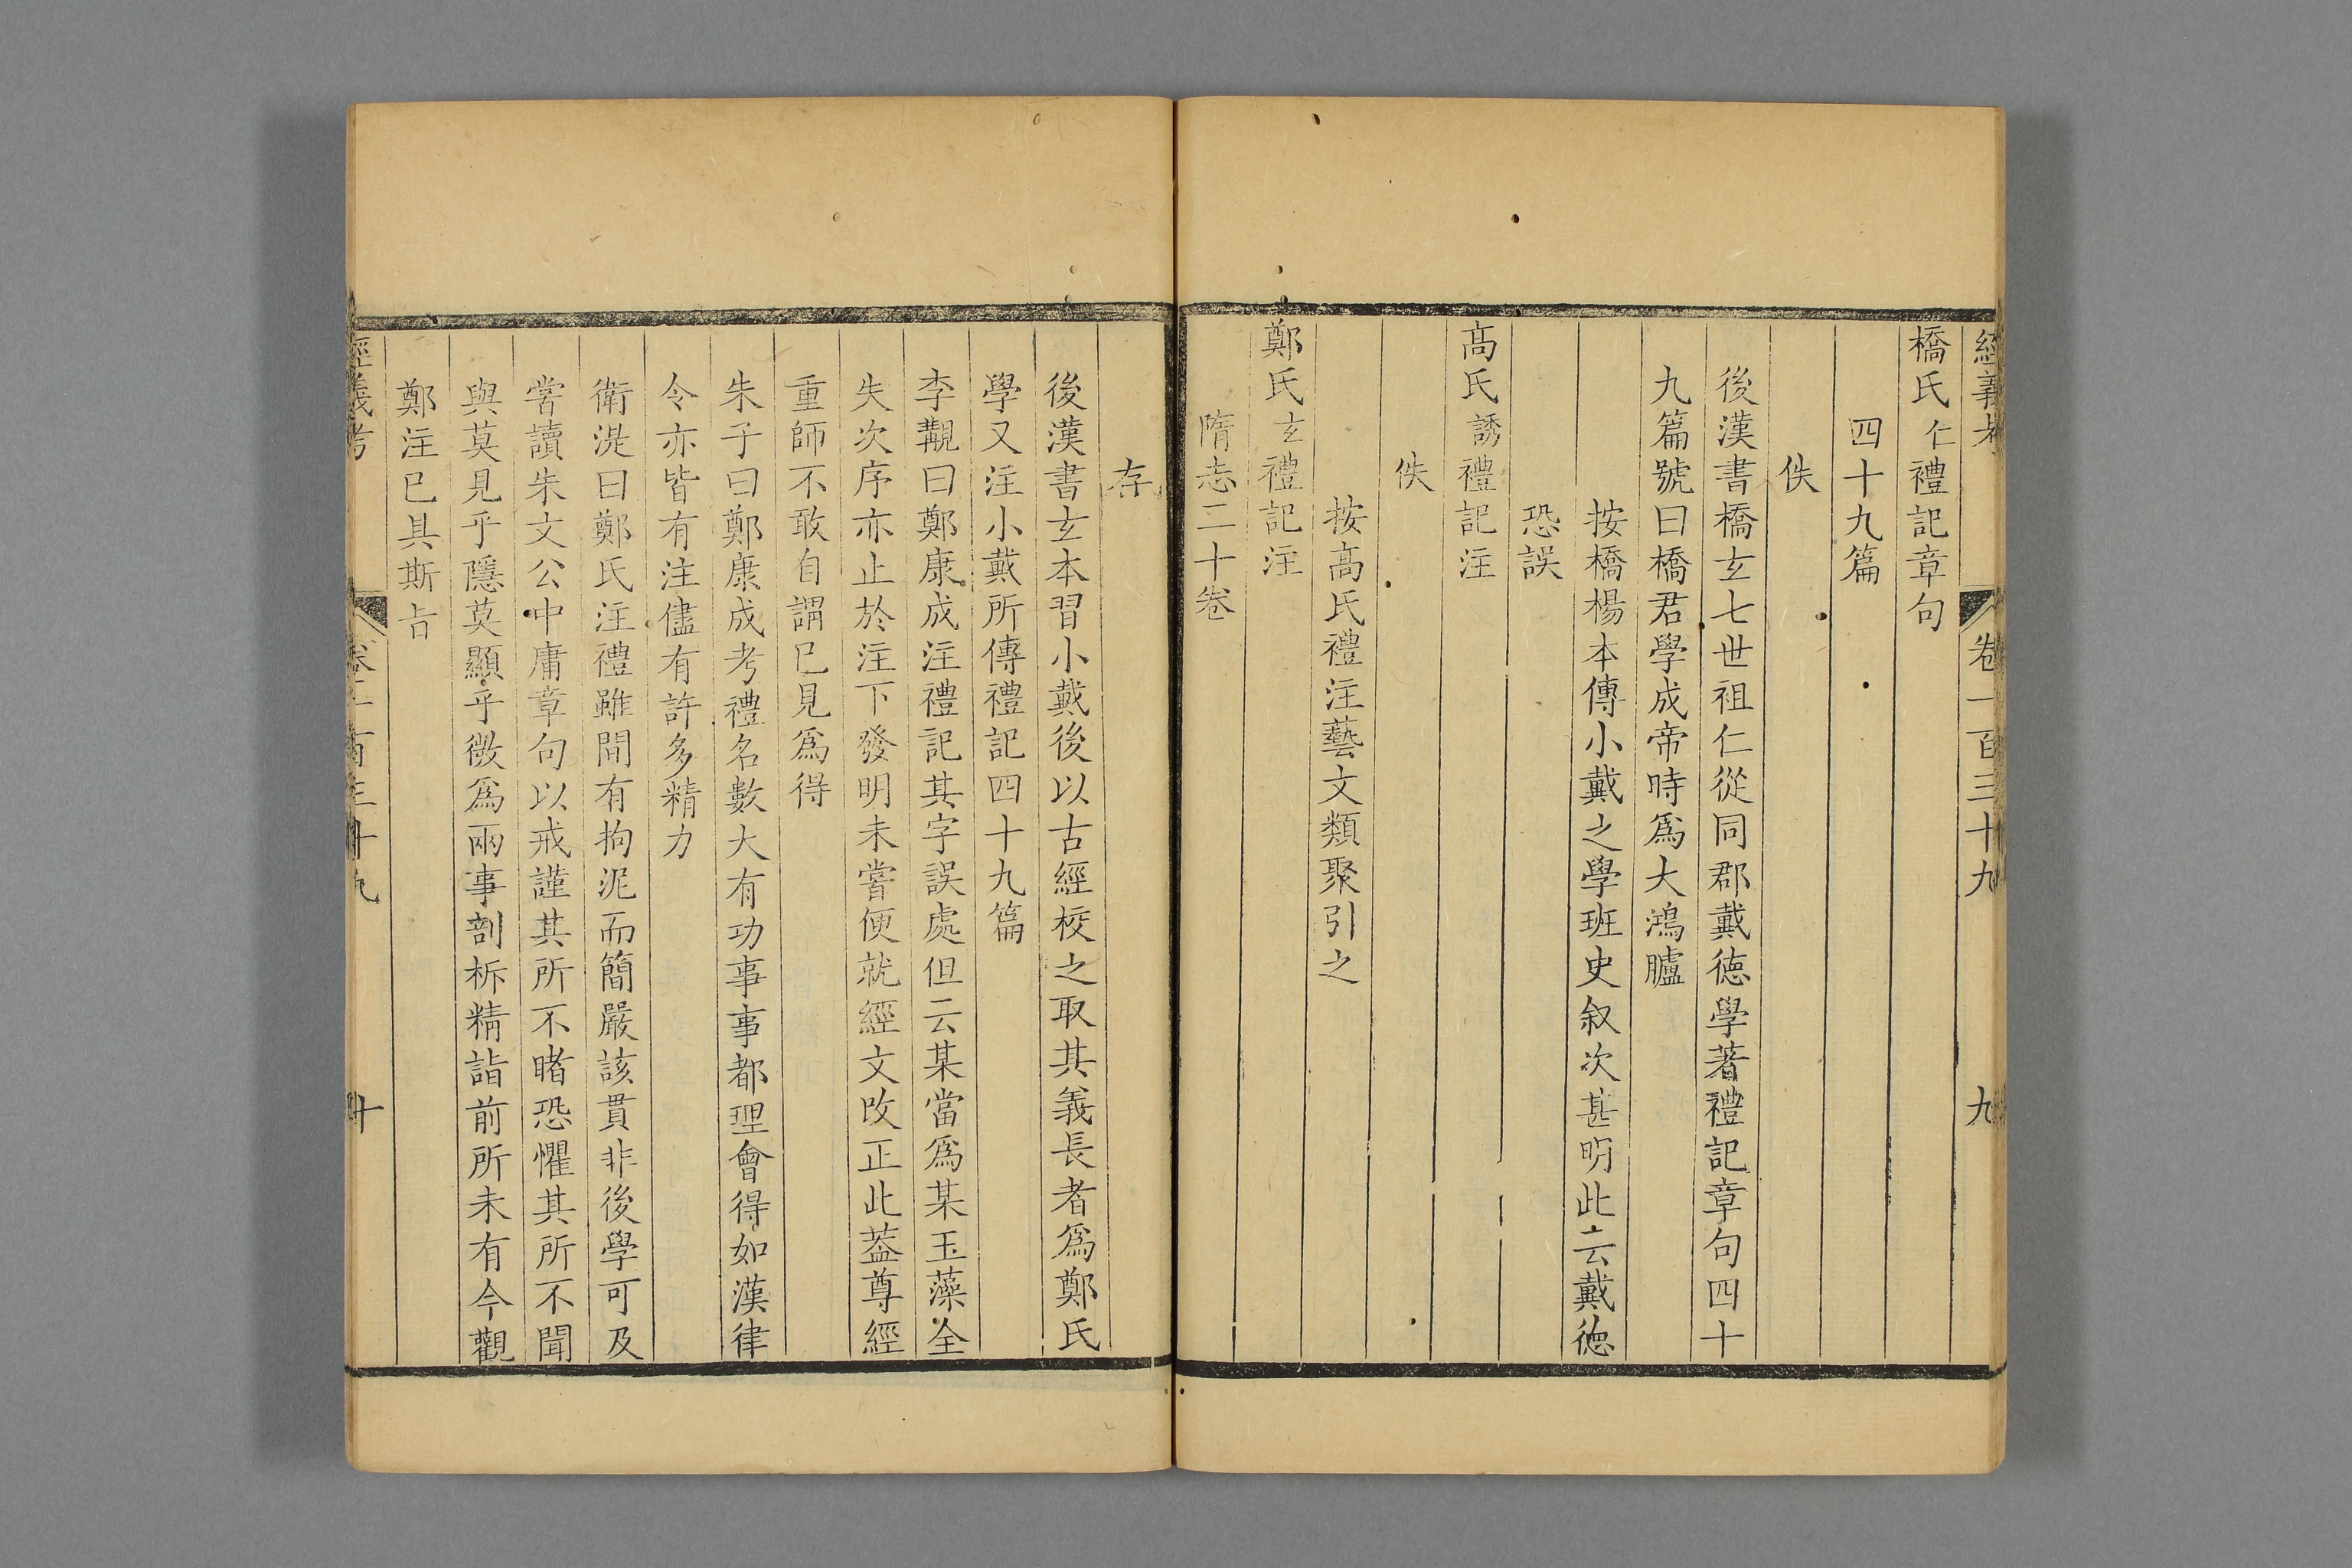 經義考 卷一百三十九 九
橋氏仁禮記章句
四十九篇
佚
後漢書橋玄七世祖仁從同郡戴徳學著禮記章句四十
九篇號曰橋君學成帝時爲大鴻臚
按橋楊本傳小戴之學班史叙次甚明此云戴徳
恐誤
髙氏誘禮記注
佚
按髙氏禮注藝文類聚引之
鄭氏玄禮記注
隋志二十卷
存
後漢書玄本習小戴後以古經校之取其義長者爲鄭氏
學又注小戴所傳禮記四十九篇
李覯曰鄭康成注禮記其字誤處但云某當爲某玉藻全
失次序亦止於注下發明未嘗便就經文改正此葢尊經
重師不敢自謂已見爲得
朱子曰鄭康成考禮名數大有功事事都理會得如漢律
令亦皆有注儘有許多精力
衛湜曰鄭氏注禮雖間有拘泥而簡嚴該貫非後學可及
嘗讀朱文公中庸章句以戒謹其所不睹恐懼其所不聞
與莫見乎隱莫顯乎微爲兩事剖析精詣前所未有今觀
鄭注已具斯㫖
經義考 卷一百三十九 十